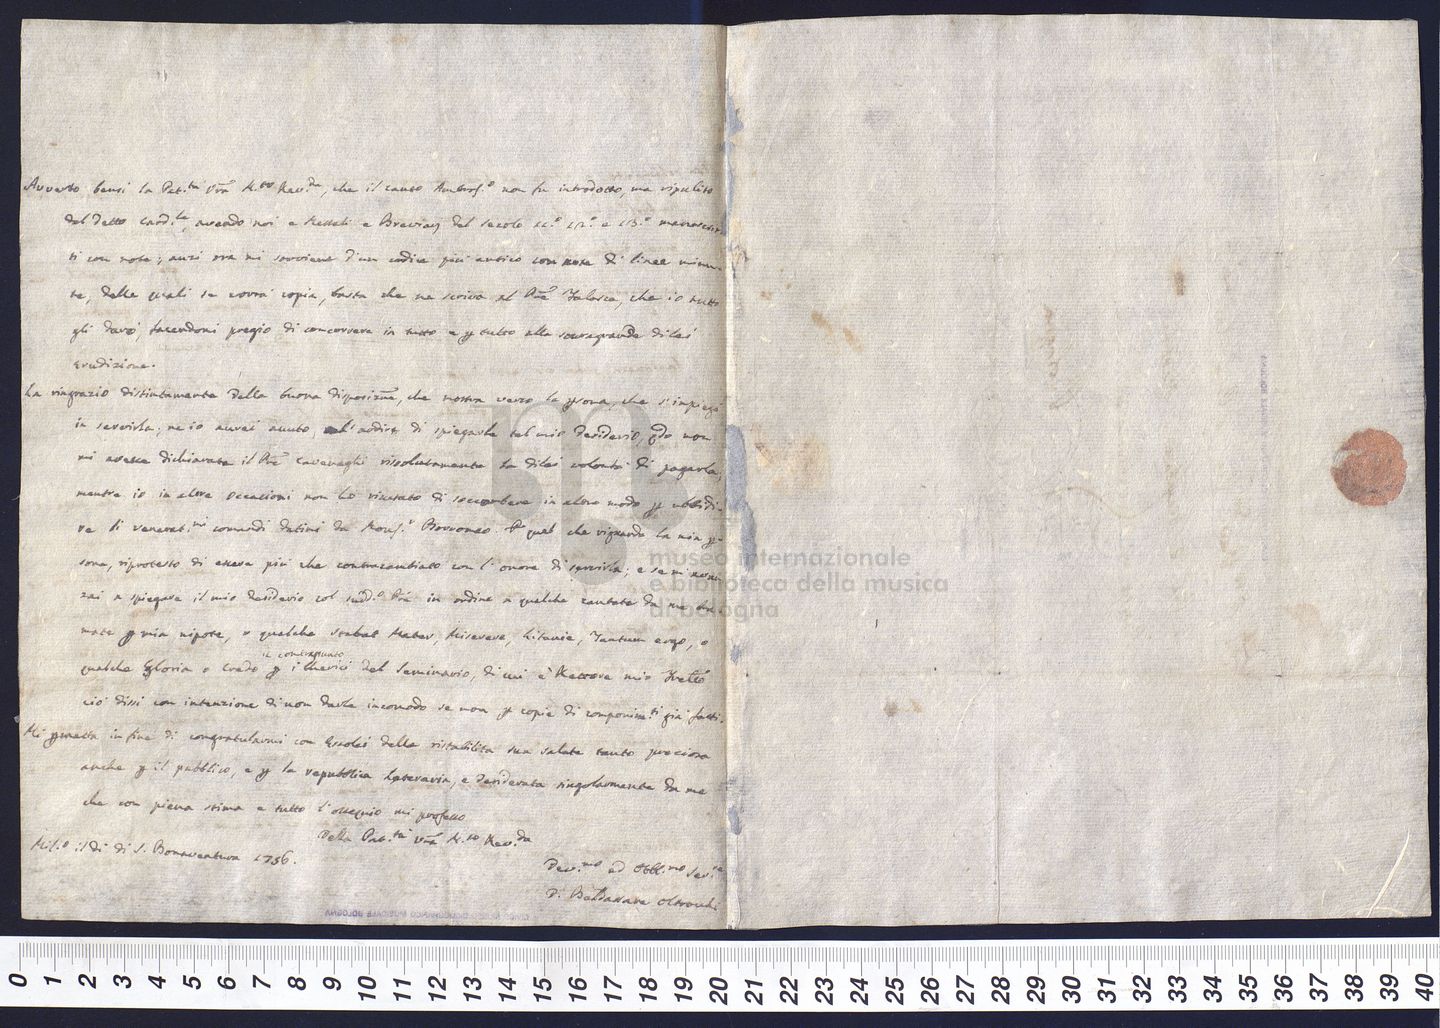 Avverto bensì la Pat.tà Vrã M.to Rev.da, che il canto Ambros.o non fu introdotto, ma ripulito
dal detto Card.le, avendo noi e Messali e Breviarj del secolo 11.o 12.o e 13.o manoscrit-
ti con note; anzi ora mi sovviene d'un codice più antico con note di linee minu-
te, delle quali se vorrà copia, basta che ne scriva al Prẽ che io tutto
gli darò, facendomi pregio di concorrere in tutto e p tutto alla sovragrande di lei
erudizione.
La ringrazio distintamente della buona disposizne, che mostra verso la psona, che s'impegò
in servirla; ne io aurei auuto, l'ardire di spiegarle tal mio desiderio, qdo non
mi avesse dichiarata il Prẽ Cavenaghi rissolutamente la di lei volontà di pagarla,
mentre io in altre occasioni non ho ricusato di soccombere in altro modo p ubbidi-
re li venerat.mi comandi datimi da Mons.r Borromeo. P quel che riguarda la mia p-
sona, riprotesto di essere più che contracambiato con l'onore di servirla; e se mi
zai a spiegare il mio desiderio col sudd.o Prẽ in ordine a qualche cantate da me
mate p mia nipote, o qualche Stabat Mater, Miserere, Litanie, Tantum ergo, o
il contrapunto
qualche Gloria o Credo p i Cherici del Seminario, di cui è Rettore mio Frello
ciò dissi con intenzione di non darle incomodo se non p copie di componim.ti già fatti.
Mi pmetta in fine di congratularmi con Essolei della ristabilita sua salute tanto preziosa
anche p il pubblico, e p la repubblica Letteraria, e desiderata singolarmente da me
che con piena stima e tutto l'ossequio mi professo
Della Pat.tà Vrã M.to Rev.da
Mil.o il dì di S. Bonaventura 1756.
Dev.mo ed Obbl.mo Ser.re
D. Baldassare Oltrocchi
museo internazionale
e biblioteca della musica
di bologna
CIVICO MUSEO BIBLIOGRAFICO MUSICALE BOLOGNA
0 1 2 3 4 5 6 7 8 9 10 11 12 13 14 15 16 17 18 19 20 21 22 23 24 25 26 27 28 29 30 31 32 33 34 35 36 37 38 39 40